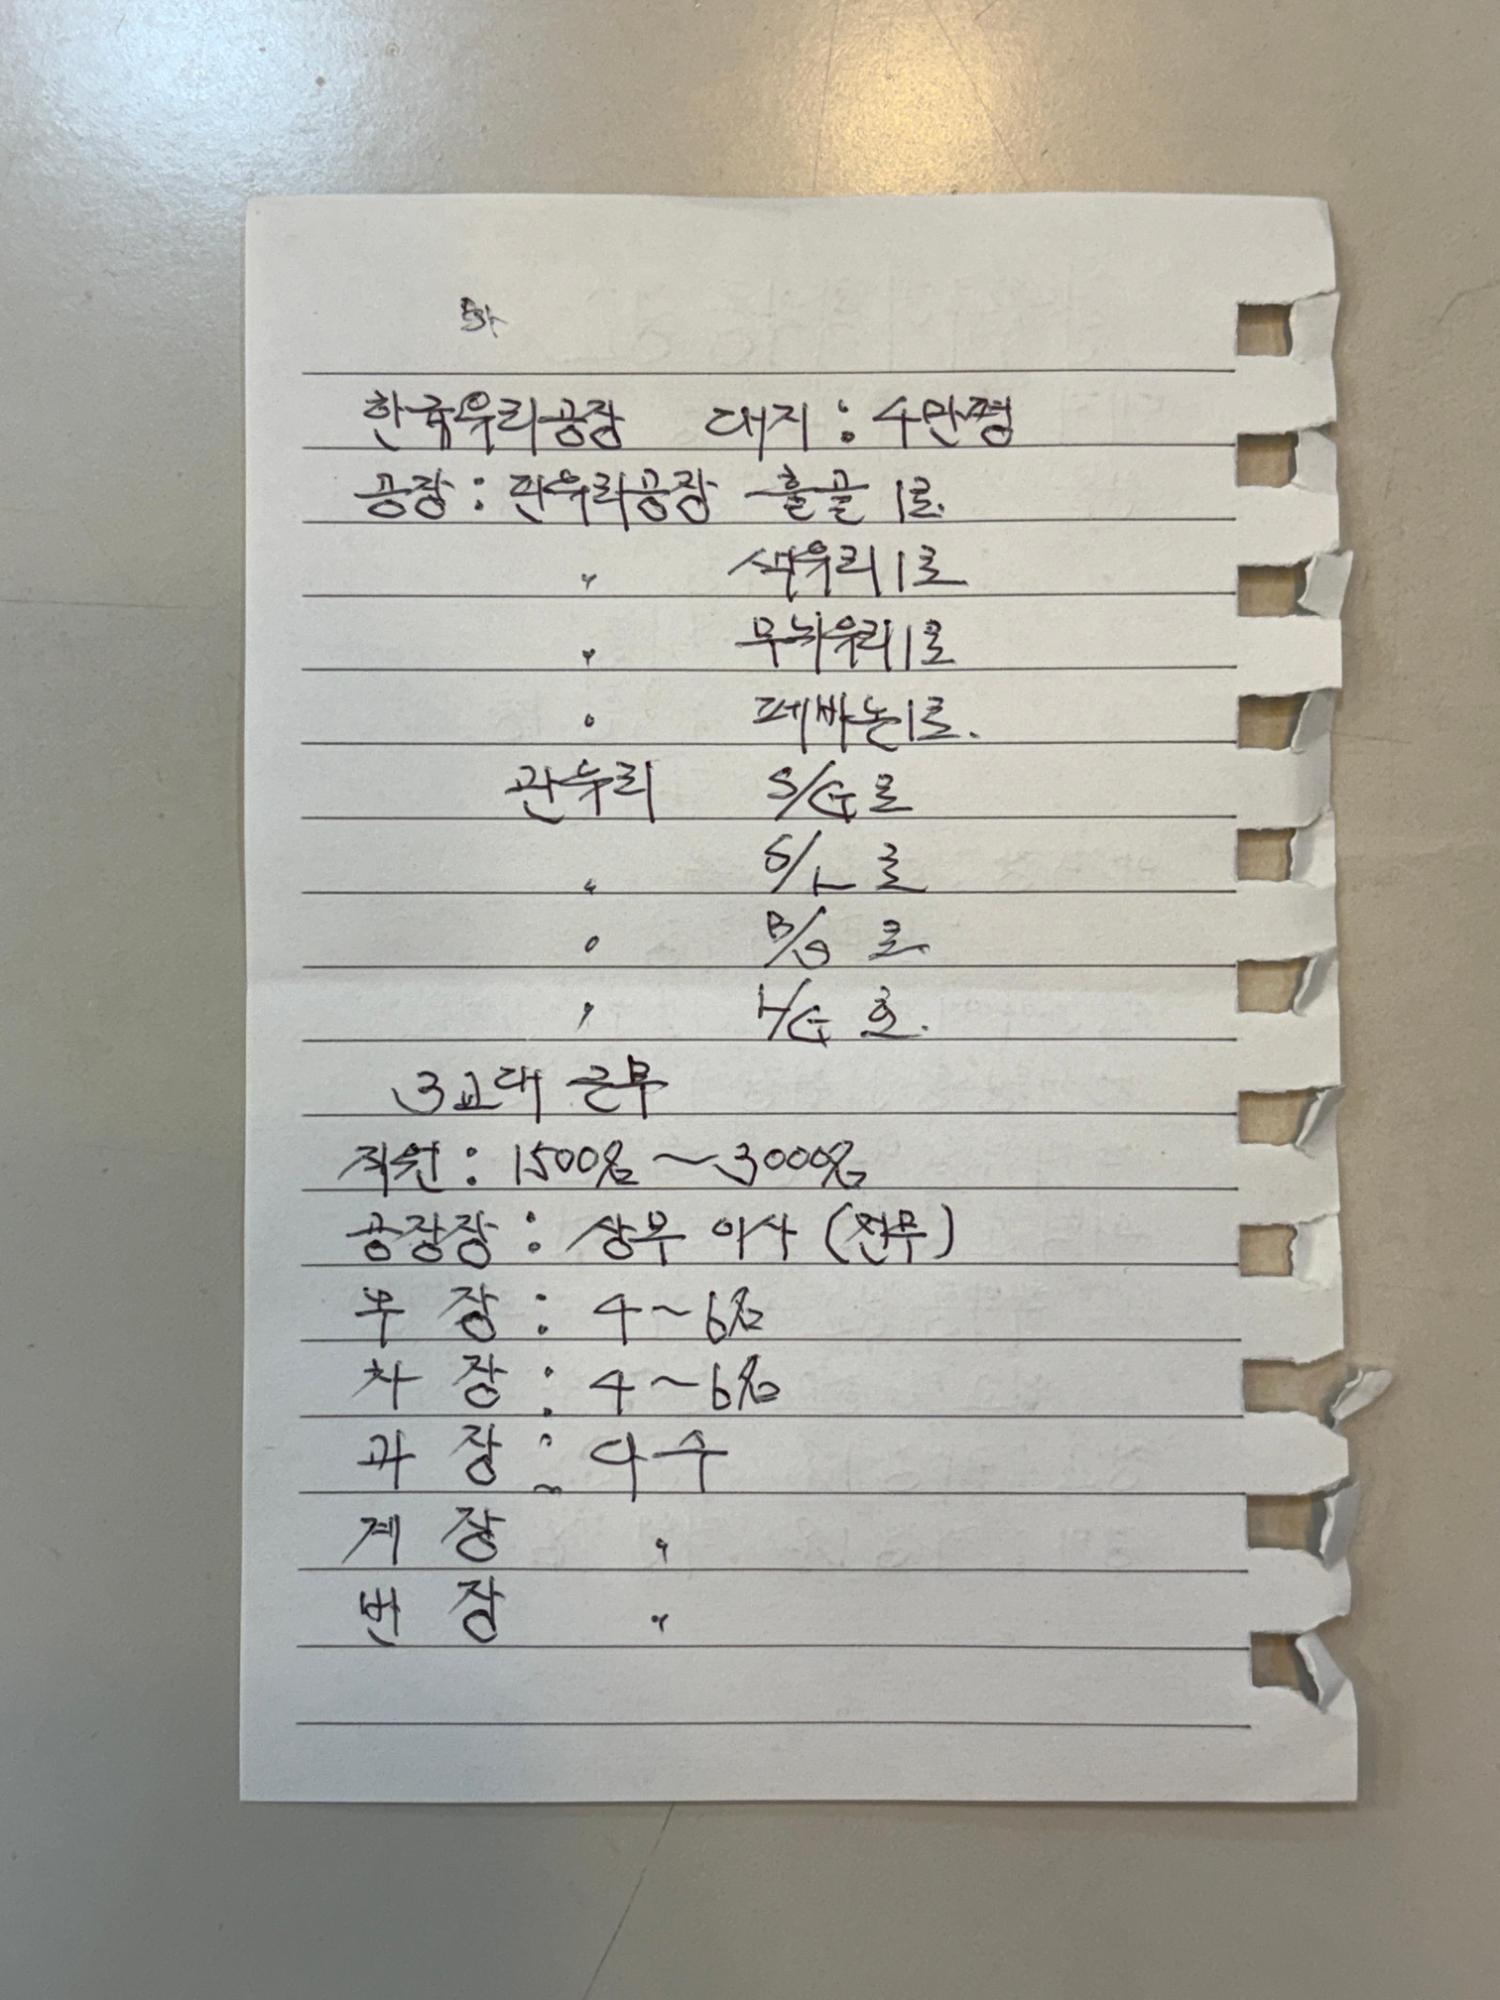 한국유리공장 대지 : 4만평
공장 : 판유리공장 홀골 1로.
〃 색유리 1로
〃 무늬유리 1로
〃 페바논 1로.
관유리 S/G 로
〃 S/L 로
〃 B/G 로
〃 L/G 로.
3교대 근무
직원 : 1500名 ~ 3000名
공장장 : 상무 이사 (전무)
부 장 : 4 ~ 6名
차 장 : 4 ~ 6名
과 장 : 다수
계 장 〃
반 장 〃